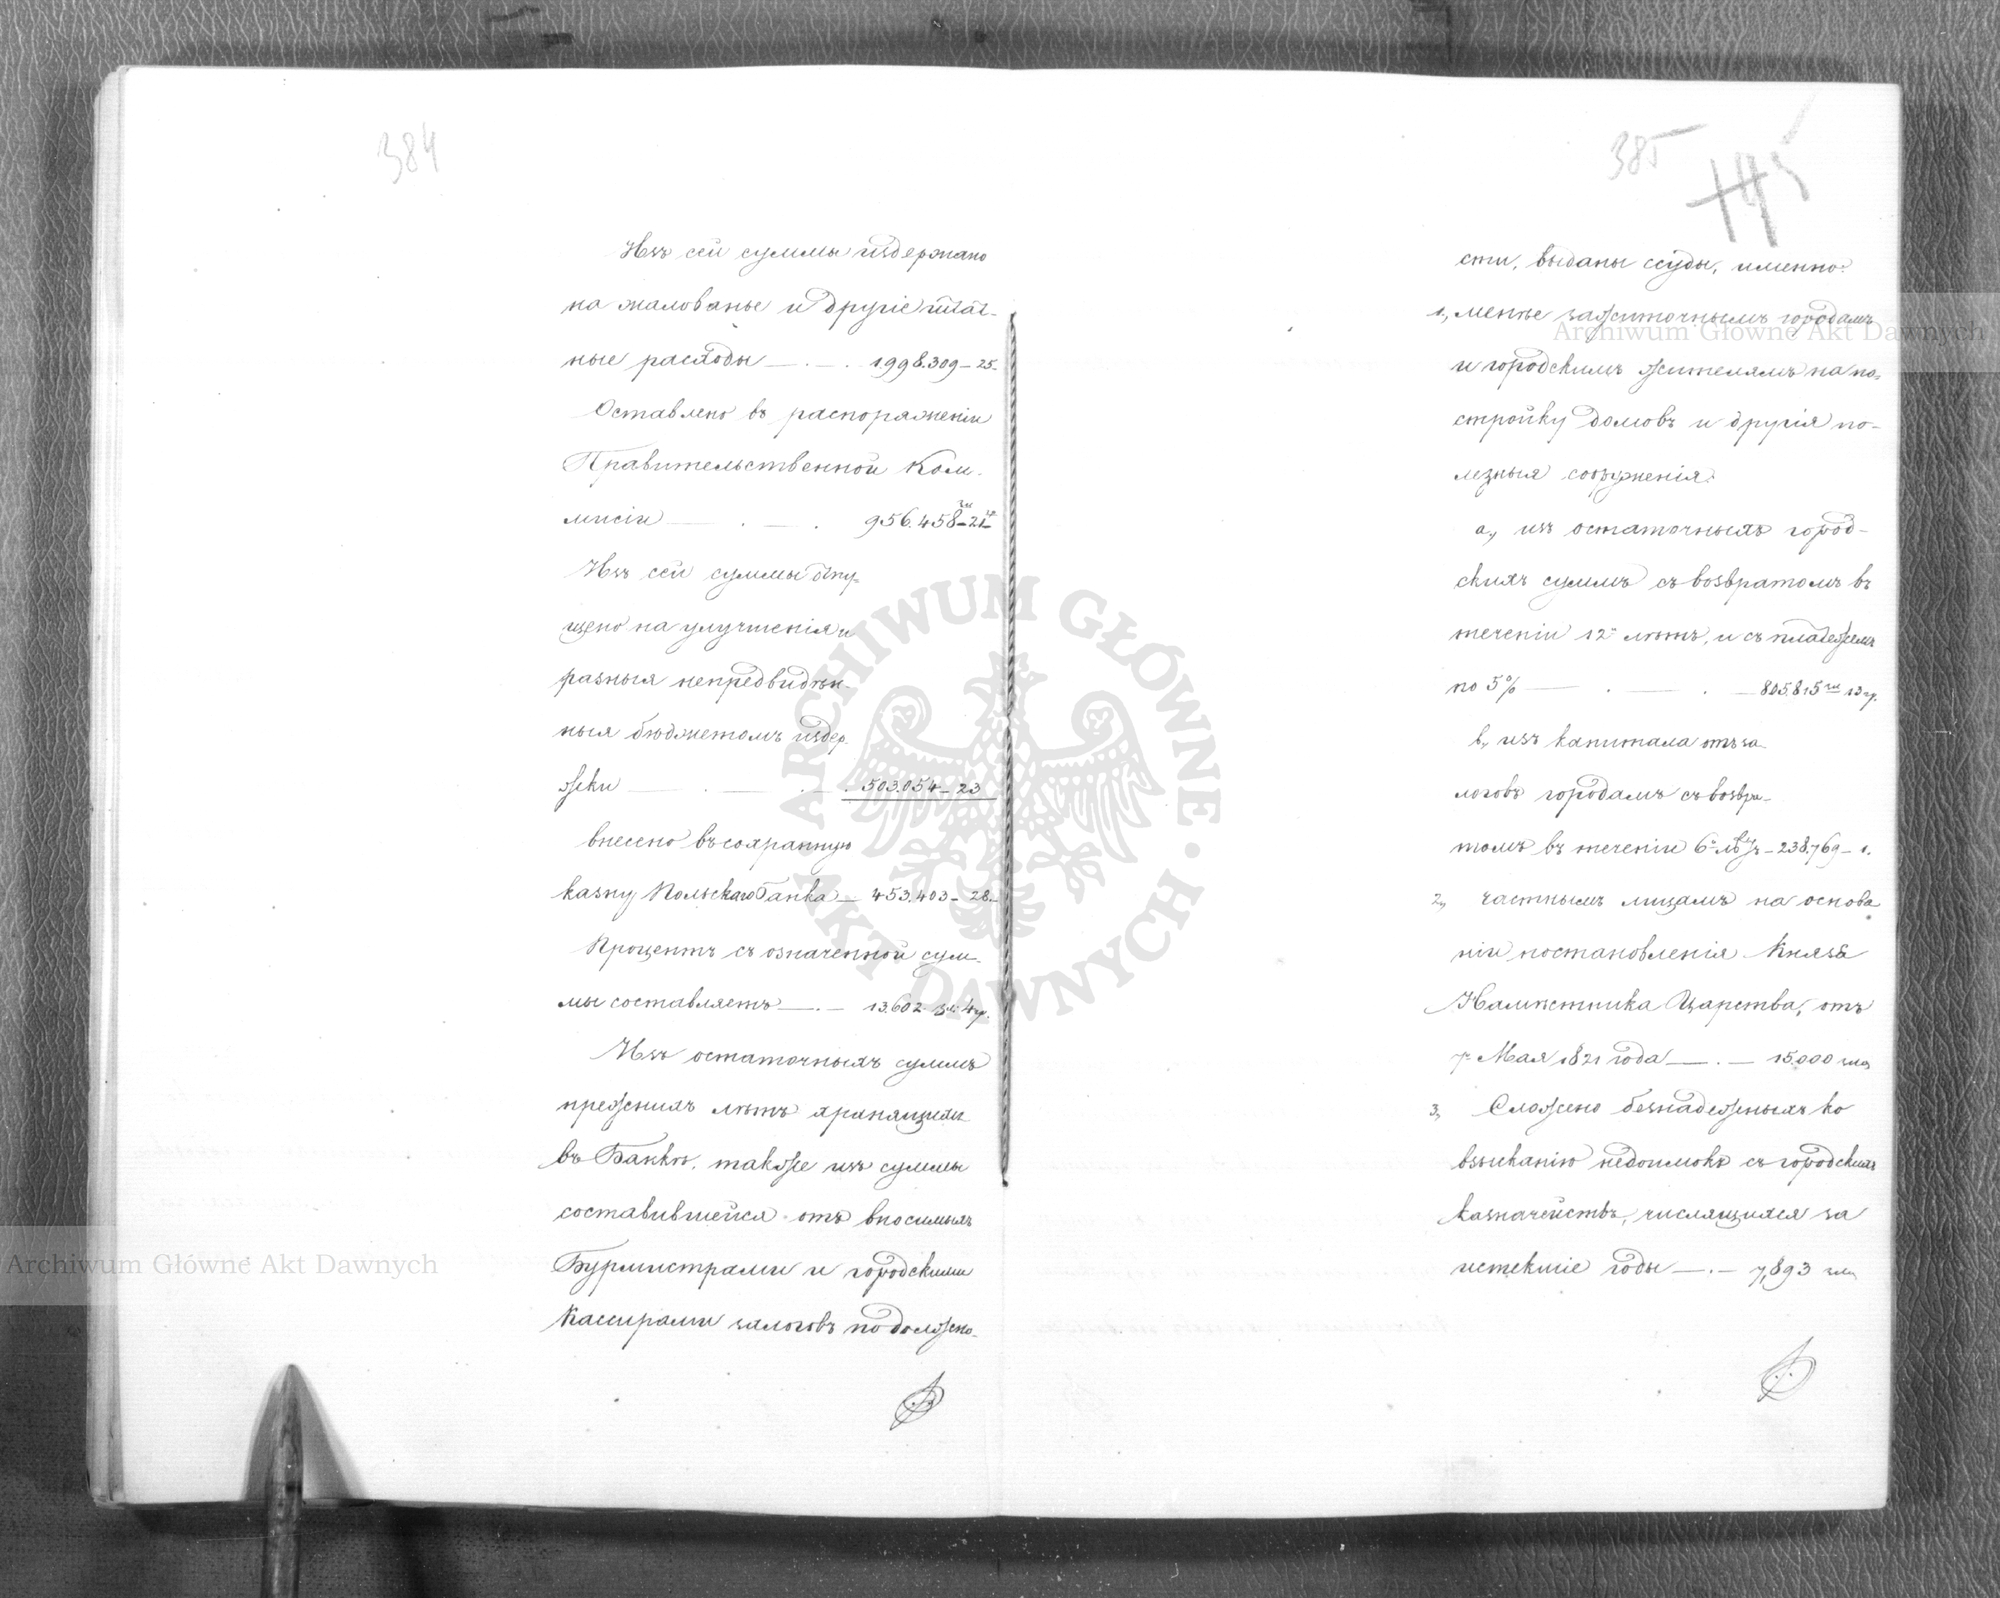 384
Изъ сей суммы издержано
на жалованье и другіе штат-
ные расходы — . — . 1.998.309 – 25.
Оставлено въ распоряженіи
Правительственной Ком-
мисіи — . — . 956.458 зл – 21 гр
Изъ сей суммы отпу-
щено на улучшенія и
разныя непредвидѣн-
ныя бюджетомъ издер-
жки — . — . — . 503.054 – 23
внесено въ сохранную
казну Польскаго Банка — 453.403 – 28.–
Процентъ съ означенной сум-
мы составляетъ — . — 13.602 зл. 4 гр.
Изъ остаточныхъ суммъ
прежнихъ лѣтъ хранящихся
въ Банкѣ, также изъ суммы
составившейся отъ вносимыхъ
Бурмистрами и городскими
Кассирами залоговъ по должно-
385
195
сти, выданы ссуды, именно:
1., менѣе зажиточнымъ городамъ
и городскимъ жителямъ на по-
стройку домовъ и другія по-
лезныя сооруженія:
а., изъ остаточныхъ город-
скихъ суммъ съ возвратомъ въ
теченіи 12ти лѣтъ, и съ платежемъ
по 5% — . — . — 805.815 зл 13 гр.
в., изъ капитала отъ за
логовъ городамъ съ возвра-
томъ въ теченіи 6ти лѣтъ – 238.769 – 1.
2., частнымъ лицамъ на основа
ніи постановленія Князя
Намѣстника Царства, отъ
7го Мая 1821 года — . — 15.000 зл
3., Сложено безнадежныхъ ко
взысканію недоимокъ съ городскихъ
казначействъ, числящихся за
истекшіе годы — . — 7,893 зл
Archiwum Główne Akt Dawnych
Archiwum Główne Akt Dawnych
ARCHIWUM GŁÓWNE · AKT DAWNYCH ·